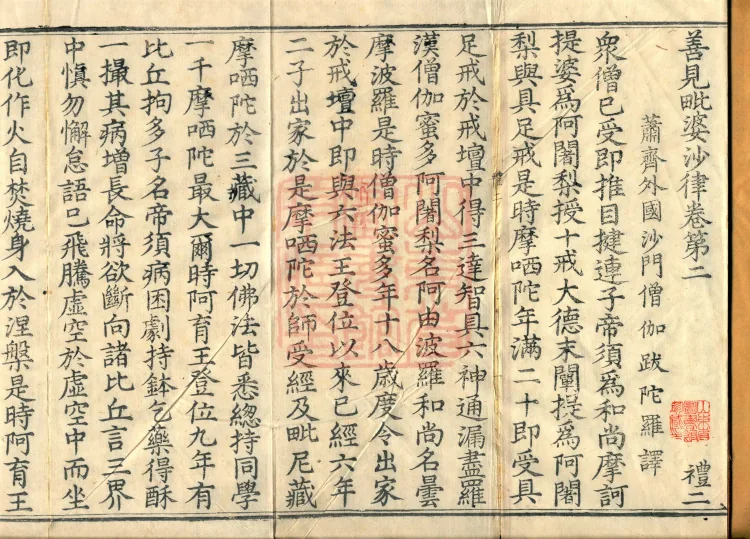 善見毗婆沙律卷第二 禮二
蕭齊外國沙門僧伽跋陀羅譯
衆僧已受即推目揵連子帝須爲和尚摩訶
提婆爲阿闍梨授十戒大德末闡提爲阿闍
梨與具足戒是時摩哂陀年滿二十即受具
足戒於戒壇中得三達智具六神通漏盡羅
漢僧伽蜜多阿闍梨名阿由波羅和尚名曇
摩波羅是時僧伽蜜多年十八歲度令出家
於戒壇中即與六法王登位以來已經六年
二子出家於是摩哂陀於師受經及毗尼藏
摩哂陀於三藏中一切佛法皆悉總持同學
一千摩哂陀最大爾時阿育王登位九年有
比丘拘多子名帝須病困劇持鉢乞藥得酥
一撮其病增長命將欲斷向諸比丘言三界
中慎勿懈怠語已飛騰虛空於虛空中而坐
即化作火自焚燒身入於涅槃是時阿育王